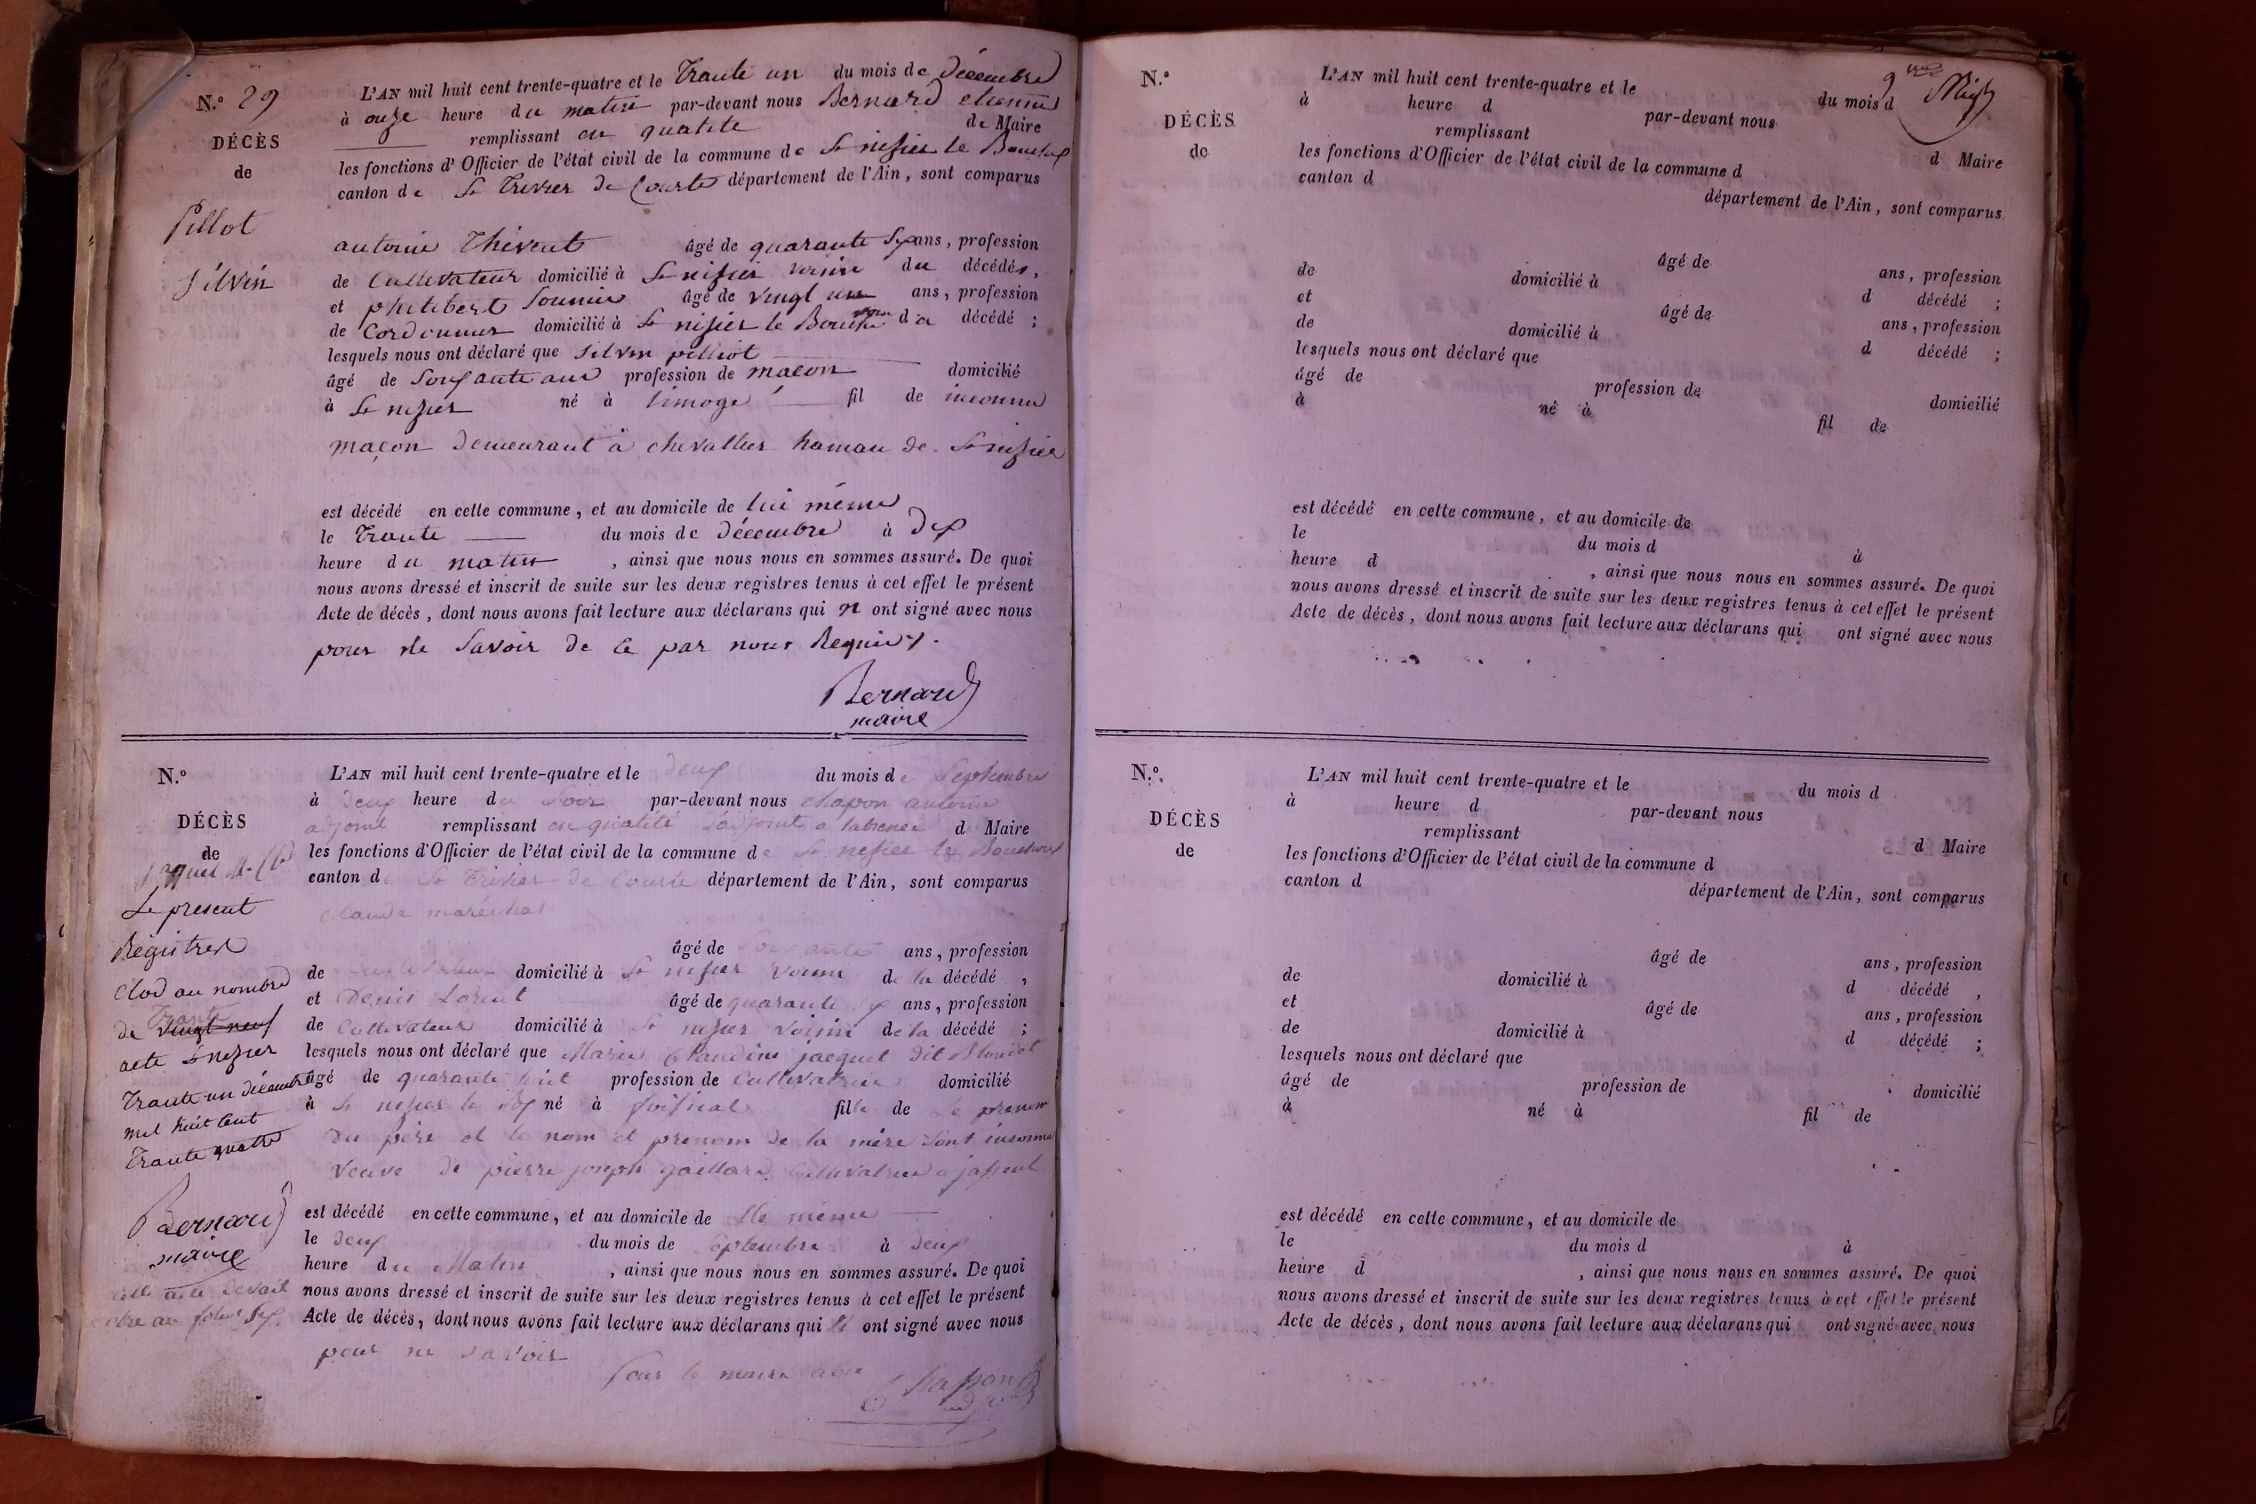 N.° 29
DÉCÈS
de
Pillot
Silvin
L'AN mil huit cent trente-quatre et le Trante un du mois de décembre
à onze heure du matin par-devant nous Bernard etienne
remplissant en qualité de Maire
les fonctions d'Officier de l'état civil de la commune de St nisier le Bouchoux
canton de St Trivier de Courtes département de l'Ain, sont comparus
antoine Thivent âgé de quarante ans, profession
de Cultivateur domicilié à St nisier voisin du décédés,
et philibert âgé de vingt un ans, profession
de Cordonnier domicilié à St nisier le Bouchoux voisin du décédé ;
lesquels nous ont déclaré que Silvin pilliot
âgé de Soixante ans profession de maçon domicilié
à St nisier né à limoge fil de inconnu
maçon demeurant à chevallier hamau de St nisier
est décédé en cette commune, et au domicile de lui même
le Trante du mois de décembre à dix
heure du matin , ainsi que nous nous en sommes assuré. De quoi
nous avons dressé et inscrit de suite sur les deux registres tenus à cet effet le présent
Acte de décès, dont nous avons fait lecture aux déclarans qui n ont signé avec nous
pour ne Savoir de ce par nous Requis.
Bernard
maire
N.°
DÉCÈS
de
Le présent
Registre
Clod au nombre
Trante
de vingt neuf
acte St nisier
Trante un décembre
mil huit cent
Trante quatre
Bernard
maire
cette acte devait
être au folio six
L'AN mil huit cent trente-quatre et le deux du mois de Septembre
à deux heure du Soir par-devant nous chapon antoine
adjoint remplissant en qualité d'adjoint d Maire
les fonctions d'Officier de l'état civil de la commune de St nisier le Bouchoux
canton de St Trivier de Courte département de l'Ain, sont comparus
Claude maréchal
âgé de Soixante ans, profession
de Cultivateur domicilié à St nisier voisin de la décédé ,
et Denis Lorent âgé de quarante six ans, profession
de Cultivateur domicilié à St nisier voisin de la décédé ;
lesquels nous ont déclaré que Marie Claudine jacquet dit
âgé de quarante huit profession de Cultivatrice domicilié
à St nisier le Bx né à fille de le prenom
du père et le nom et prenom de la mère sont inconnu
veuve de pierre joseph gaillard Cultivatrice a
est décédé en cette commune, et au domicile de elle même
le deux du mois de Septembre à deux
heure du Matin , ainsi que nous nous en sommes assuré. De quoi
nous avons dressé et inscrit de suite sur les deux registres tenus à cet effet le présent
Acte de décès, dont nous avons fait lecture aux déclarans qui n ont signé avec nous
pour ne savoir
Pour le maire
Chapon
N.°
DÉCÈS
de
L'AN mil huit cent trente-quatre et le du mois d
à heure d par-devant nous
remplissant d Maire
les fonctions d'Officier de l'état civil de la commune d
canton d département de l'Ain, sont comparus
âgé de ans, profession
de domicilié à d décédé ;
et âgé de ans, profession
de domicilié à d décédé ;
lesquels nous ont déclaré que
âgé de profession de domicilié
à né à fil de
est décédé en cette commune, et au domicile de
le du mois d à
heure d , ainsi que nous nous en sommes assuré. De quoi
nous avons dressé et inscrit de suite sur les deux registres tenus à cet effet le présent
Acte de décès, dont nous avons fait lecture aux déclarans qui ont signé avec nous
N.°
DÉCÈS
de
L'AN mil huit cent trente-quatre et le du mois d
à heure d par-devant nous
remplissant d Maire
les fonctions d'Officier de l'état civil de la commune d
canton d département de l'Ain, sont comparus
âgé de ans, profession
de domicilié à d décédé ,
et âgé de ans, profession
de domicilié à d décédé ;
lesquels nous ont déclaré que
âgé de profession de domicilié
à né à fil de
est décédé en cette commune, et au domicile de
le du mois d à
heure d , ainsi que nous nous en sommes assuré. De quoi
nous avons dressé et inscrit de suite sur les deux registres tenus à cet effet le présent
Acte de décès, dont nous avons fait lecture aux déclarans qui ont signé avec nous